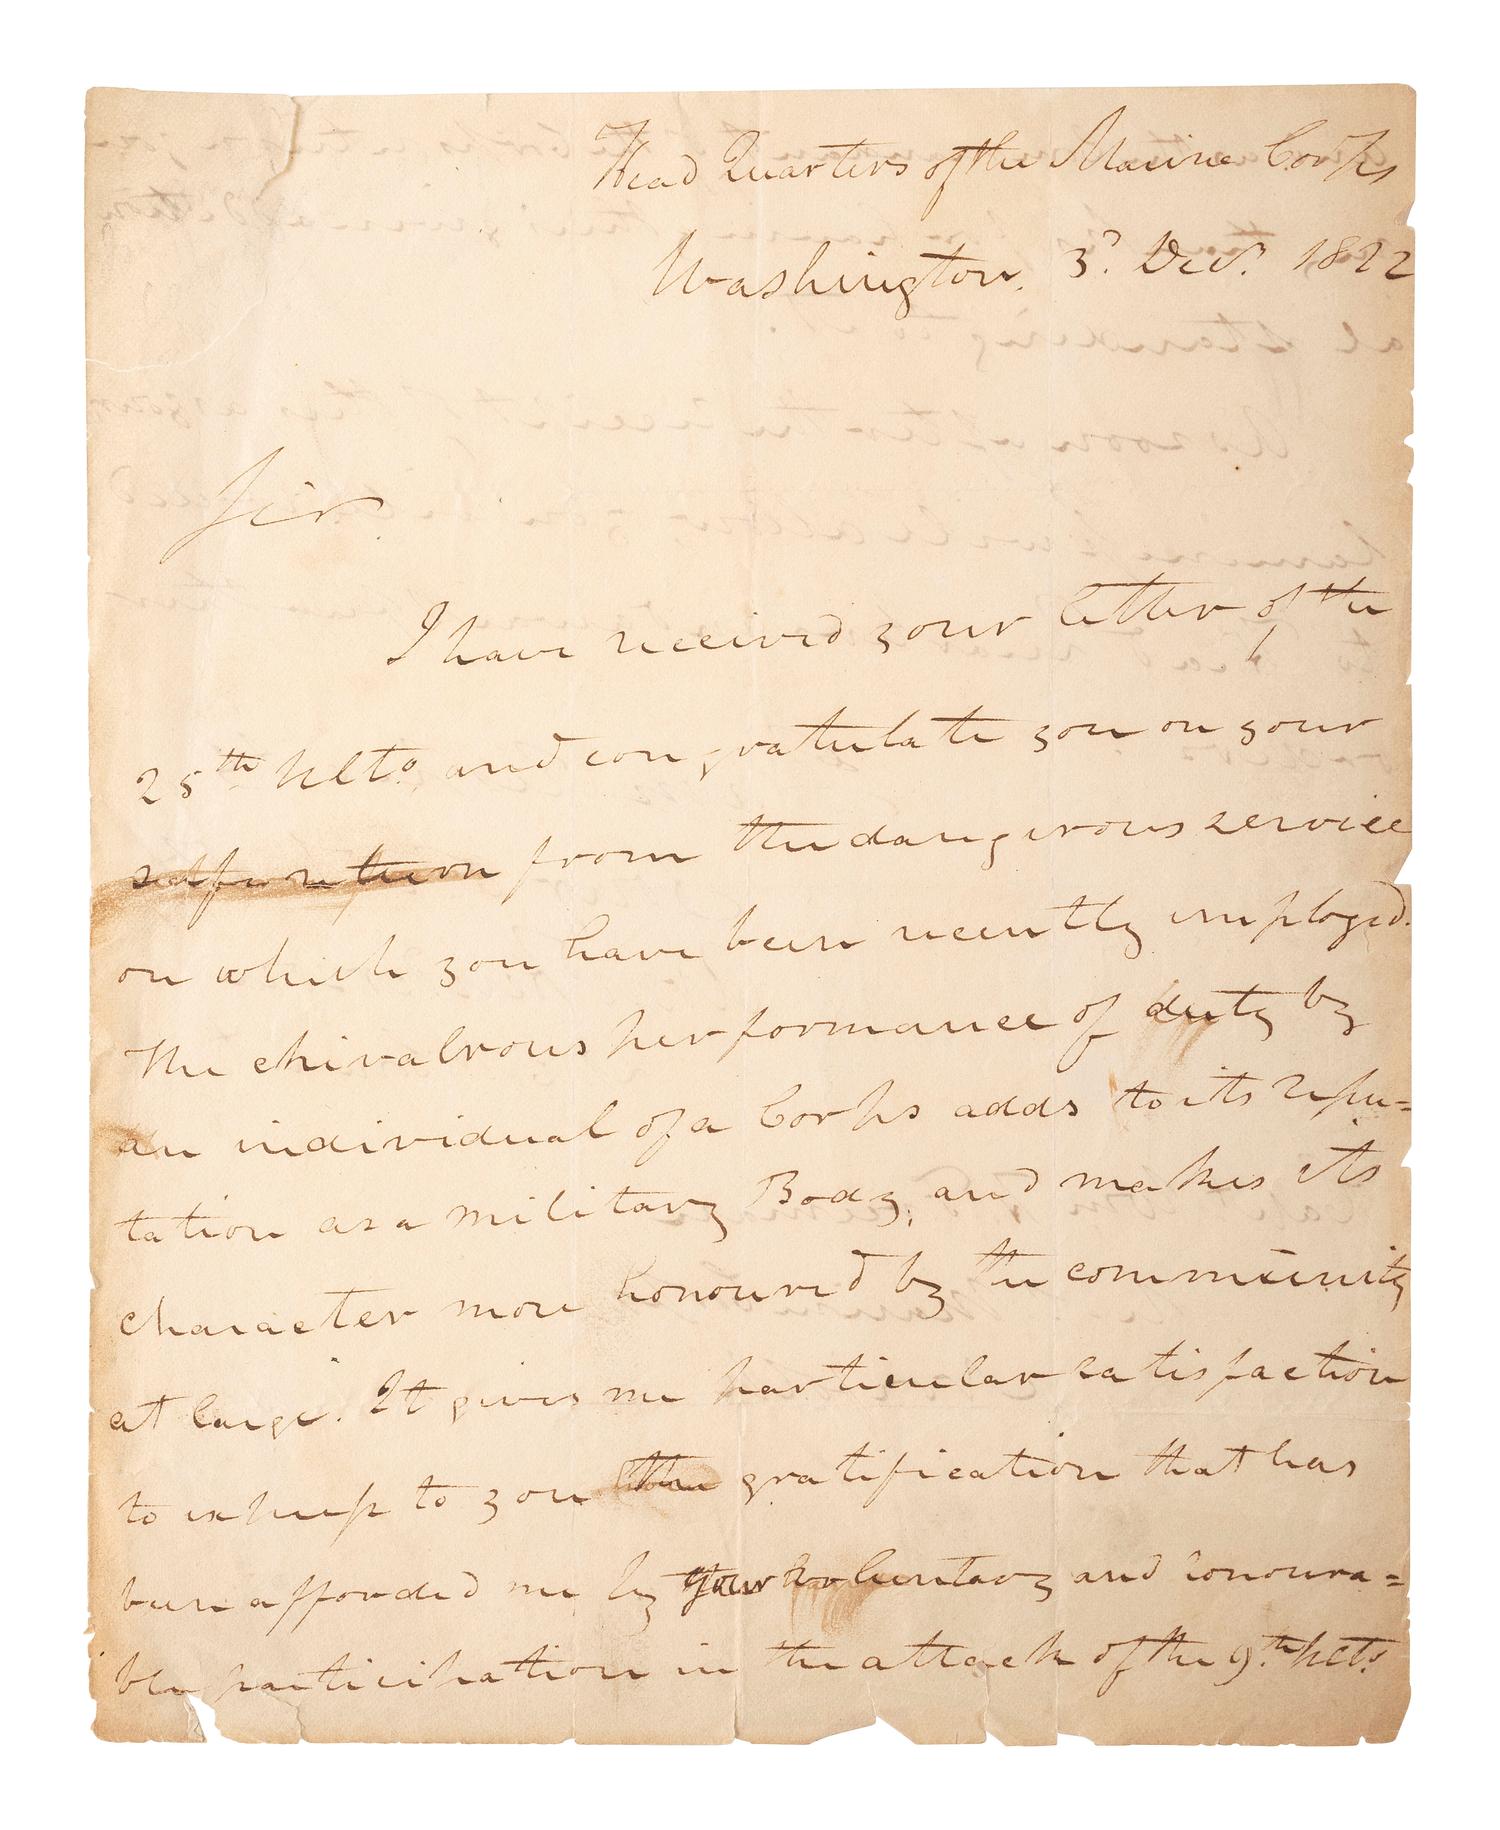 Head Quarters of the Marine Corps
Washington. 3d. Decr. 1822
Sir.
I have received your letter of the
25th Ulto. and congratulate you on your
from the dangerous service
on which you have been recently employed.
The chivalrous performance of duty by
an individual of a Corps adds to its repu=
tation as a military Body, and makes its
character more honoured by the community
at large. It gives me particular satisfaction
to express to you the gratification that has
been afforded me by your voluntary and honoura=
ble participation in the attack of the 9th. Ulto.